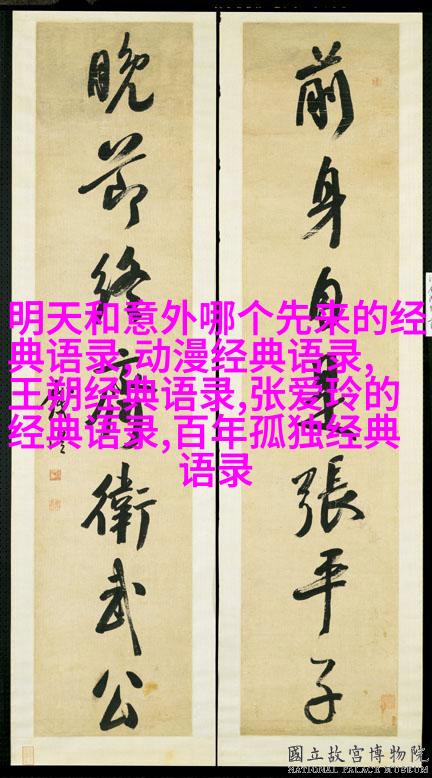 明天和意外哪个先来的经
典语录,动漫经典语录,
王朔经典语录,张爱玲的
经典语录,百年孤独经典
语录
前身自張平子
晚節終衛武公
國立故宮博物院
NATIONAL PALACE MUSEUM